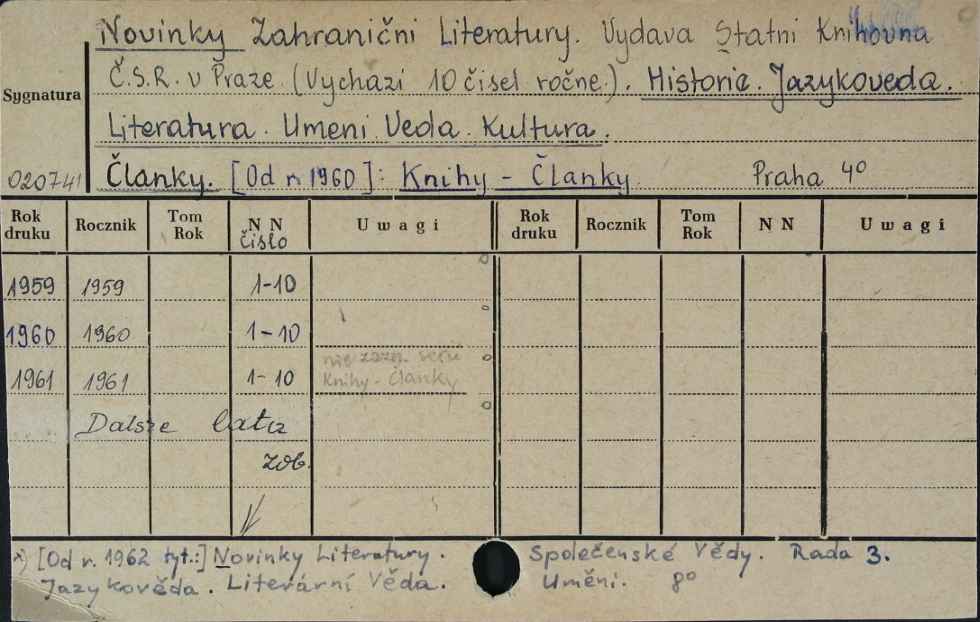 Novinky Zahranični Literatury. Vydava Statni Knihovna
Č.S.R. v Praze. (Vychazi 10 čisel ročne). Historie. Jazykoveda.
Sygnatura
Literatura. Umeni. Veda. Kultura.
020741 Članky. [Od r. 1960]: Knihy - Članky. Praha 4°
Rok druku Rocznik Tom Rok N N čislo Uwagi Rok druku Rocznik Tom Rok N N Uwagi
1959 1959 1-10
1960 1960 1-10
nie zazn. serii
1961 1961 1-10 Knihy - Članky
Dalsze lata
zob.
x) [Od r. 1962 tyt.:] Novinky Literatury. Společenské Vědy. Rada 3.
Jazykověda. Literární Věda. Uměni. 8°